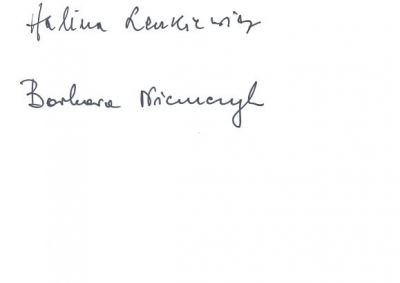 Halina Lenkiewicz
Barbara Niemczyk